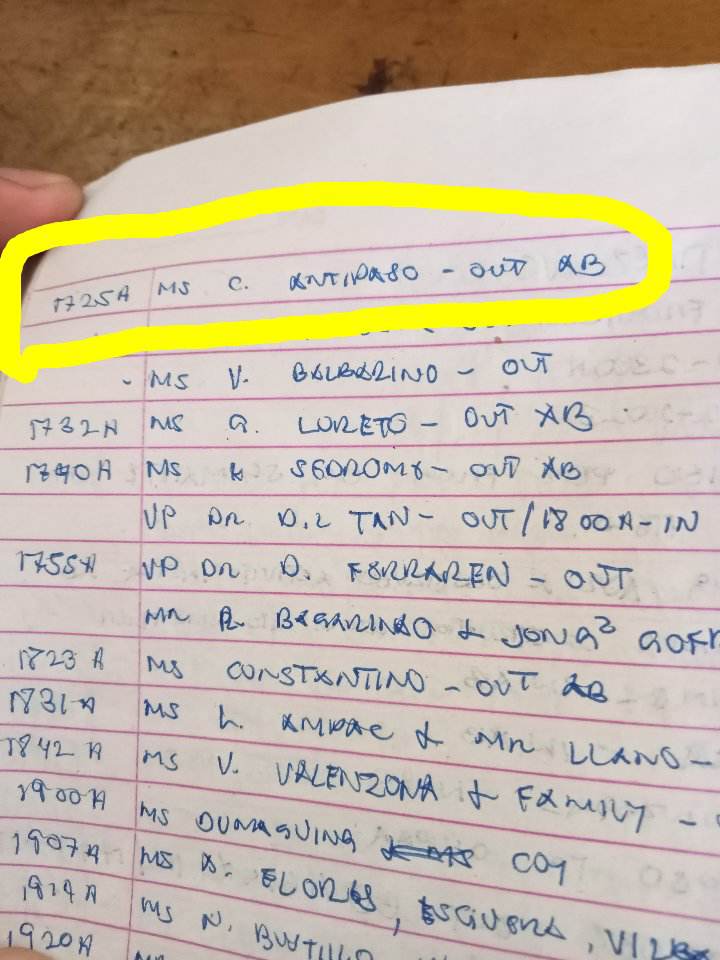 1725A MS C. ANTIPASO - OUT AB
- MS V. BALBARINO - OUT
1732A MS G. LORETO - OUT AB
1740A MS SGOROMY - OUT AB
VP DR D.L TAN - OUT/1800A-IN
1755A VP DR D. FERRAREN - OUT
MR R. BAGARINAO & JONG²
1823A MS CONSTANTINO - OUT AB
1831A MS L. AMPAC & MR LLANO -
1842A MS V. VALENZONA & FAMILY -
1900A MS DUMAGUING COY
1907A MS A. FLORES, ESGUERA,
MS N.
1920A